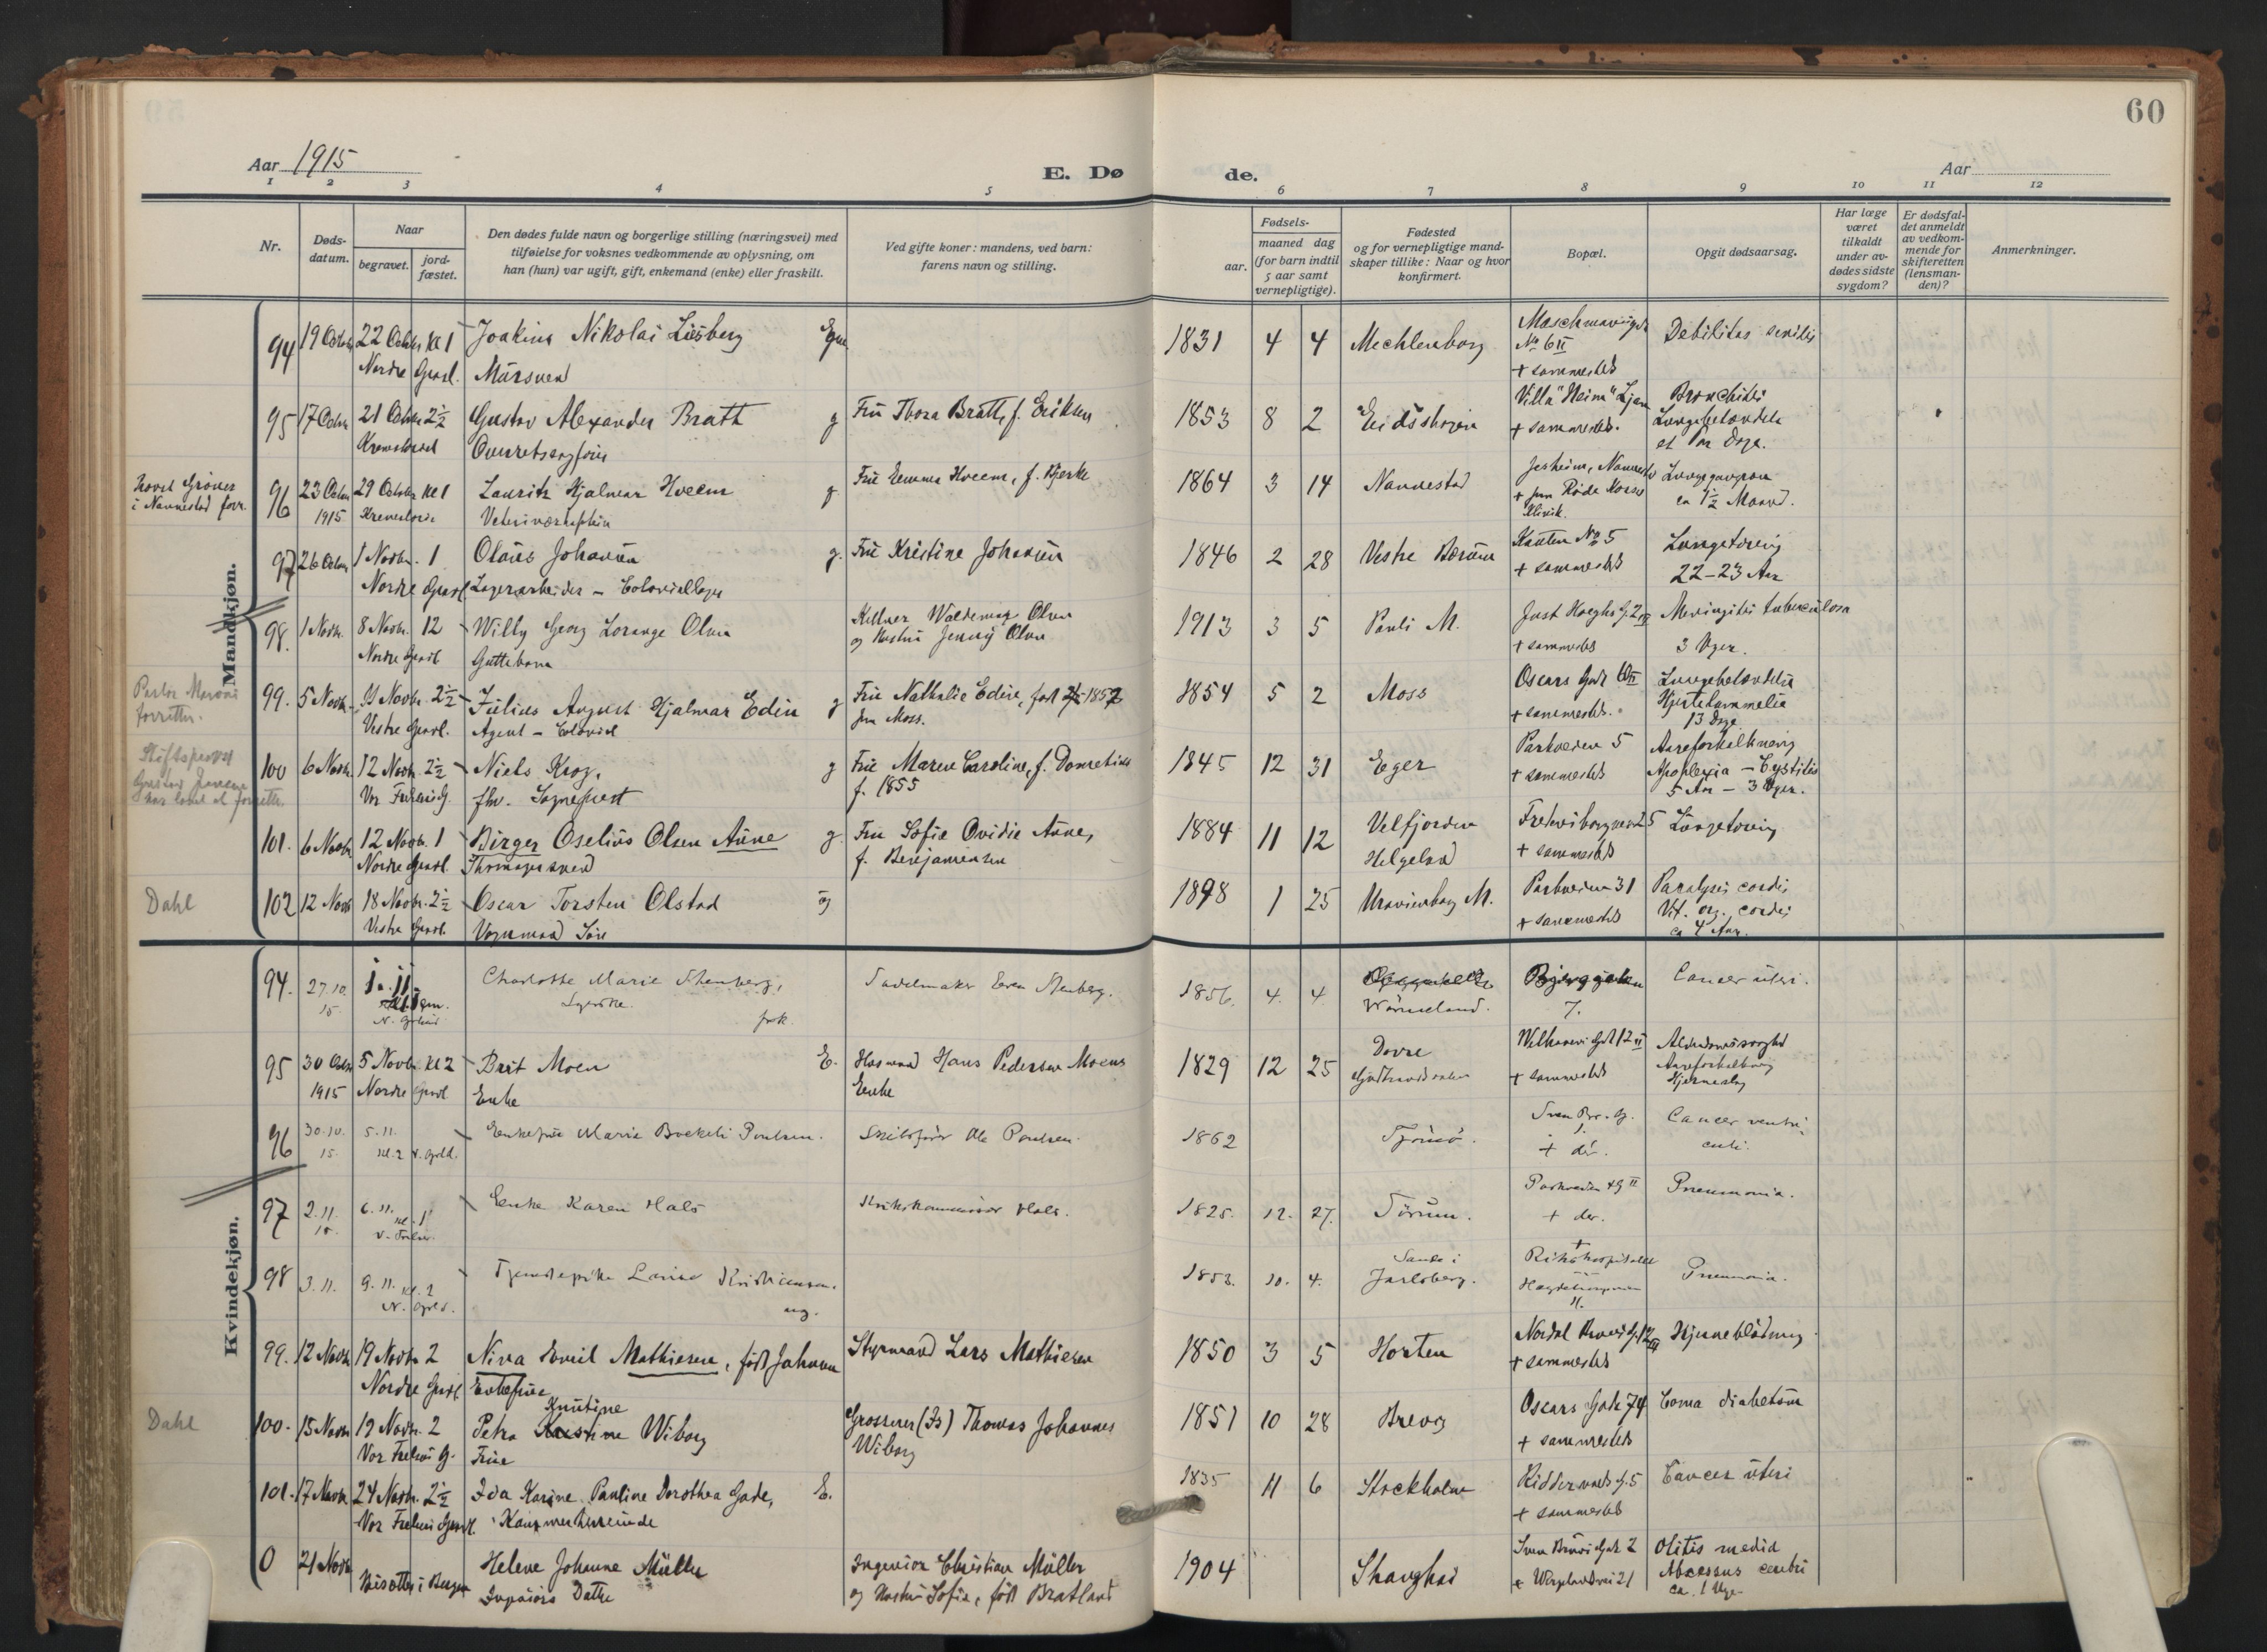 60
Aar 1915
E. Dø de.
Aar
1 2 3 4 5 6 7 8 9 10 11 12
Nr.
Døds-datum.
Naar
begravet.
jord-fæstet.
Den dødes fulde navn og borgerlige stilling (næringsvei) med
tilføielse for voksnes vedkommende av oplysning, om
han (hun) var ugift, gift, enkemand (enke) eller fraskilt.
Ved gifte koner: mandens, ved barn:
farens navn og stilling.
Fødsels-
aar.
maaned dag
(for barn indtil
5 aar samt
vernepligtige).
Fødested
og for vernepligtige mand-
skaper tillike: Naar og hvor
konfirmert.
Bopæl.
Opgit dødsaarsag.
Har læge
været
tilkaldt
under av-
dødes sidste
sygdom?
Er dødsfal-
det anmeldt
av vedkom-
mende for
skifteretten
(lensman-
den)?
Anmerkninger.
Mandkjøn.
94 19 Octbr 22 Octbr Kl 1 Joakim Nikolai Liesberg 1831 4 4 Mechlenborg No 6 II Debilitas senilis
Nordre Gravl. Mursvend + sammesteds
95 17 Octbr 21 Octbr 2½ Gustav Alexander Bratt g Fru Thora Bratt, f. Eriksen 1853 8 2 Eidskogen Villa "Heim" Ljan Bronchitis
Krematoriet Overretssagfører + sammesteds. Lungebetændelse
96 23 Octbr 29 Octbr Kl 1 Lauritz Hjalmar Hveem g Fru Emma Hveem, f. Bjerke 1864 3 14 Nannestad Jesheim, Nannestad Lungegangræn
i Nannestad forr. 1915 Krematoriet + Røde Korses Klinik. ca 1½ Maaned.
97 26 Octbr 1 Novbr. 1 Olaus Johansen g. Fru Kristine Johansen 1846 2 28 Vestre Bærum No 5 Lungetæring
Nordre Gravl. Lagerarbeider – Coloniallager + sammesteds 22–23 Aar
98. 1 Novbr. 8 Novbr. 12 Willy Georg Lorange Olsen Kellner Waldemar Olsen 1913 3 5 Pauli M. Just Hoeghs G. 2 IV Meningitis tuberculosa
Nordre Gravl Guttebarn og Hustru Jenny Olsen + sammesteds 3 Uger.
99. 5 Novbr. 2½ Julius August Hjalmar Edin g Fru Nathalie Edin, født 1857 1854 5 2 Moss Oscars Gade Lungebetændelse
forretter. Vestre Gravl. Agent – Colonial fra Moss. + sammesteds. Hjertelammelse
13 Dage
Stiftsprovst
Gustav Jensen
100 6 Novbr. 12 Novbr. 2½ Niels Krog, g Fru Maren Caroline, f. 1845 12 31 Eger Parkveien 5 Aareforkalkning
Vor Frelsers G. fhv. Sogneprest f. 1855 + sammesteds Apoplexia – Cystitis
5 Aar – 3 Uger.
101. 6 Novbr 12 Novbr. 1 Birger Oselius Olsen Aune g. Fru Sofie Ovidie Aune, 1884 11 12 Velfjorden Lungetæring
Nordre Gravl. f. Benjaminsen Helgeland + sammesteds
Dahl 102 12 Novbr 18 Novbr. 2½ Oscar Torsten Olstad ug 1898 1 25 Uranienborg M. Parkveien 31 Paralysis cordis
Vestre Gravl. Vognmand Søn + sammesteds Vit. org. cordis
ca 4 Aar.
Kvindekjøn.
94. 27.10. 15 1. 11. Charlotte Marie Stenberg, Sadelmaker Even Stenberg. 1856. 4. 4 Cancer uteri.
Syerske. frk. Wärmeland. 7.
95 30 Octbr 5 Novbr. Kl 2 Brit Moen E. Husmand Hans Pedersen Moens 1829 12 25 Dovre Welhavens Gade 12 II Alderdomssvaghed
1915 Nordre Gravl Enke Enke Gudbrandsdalen + sammesteds Aareforkalkning
Hjerneslag
96 30.10. 15. 5.11. kl. 2 Enkefrue Marie Boekeli Poulsen. Skibsfører Ole Poulsen. 1862 Tjömö. Cancer ventri-
+ der. culi.
97 2.11. 15. 6.11. kl. 1 Enke Karen Hals Krikskommissær Hals. 1825. 12. 27. Sørum. Parkveien 49 II Pneumonia.
+ der.
98 3.11. 9.11. kl. 2 Tjenestepike Lovise Kristiansen. 1853. 10. 4. Sande i Rikshospitalet Pneumonia.
ug. Jarlsberg.
99. 12 Novbr 19 Novbr 2 Nina Emil Mathiesen, født Johnsen Styrmand Lars Mathiesen 1850 3 5 Horten Nordal Bruns G. 12 III Hjerneblødning
Nordre Gravl. Enkefrue + sammesteds
Dahl 100. 15 Novbr 19 Novbr. 2 Petra Knutine Wiborg Grosserer (Is) Thomas Johannes 1851 10 28 Brevig Oscars Gade 74 Coma diabetum
Vor Frelsers G. Frue Wiborg + sammesteds
101. 17 Novbr 24 Novbr. 2½ Ida Karine Pauline Dorothea Gade, E. 1835 11 6 Stockholm Riddervolds G. 5 Cancer uteri
Vor Frelsers Gravl. Kammerherreinde + sammesteds
0 21 Novbr Helene Johanne Müller Ingeniør Christian Müller 1904 Shanghai Sven Bruns Gade 2 Otitis media
Bisættes i Bergen Ingeniørs Datter og Hustru Sofie, født Bratland + Wergelandsvei 21 Abcessus cerebri
ca. 1 Uge